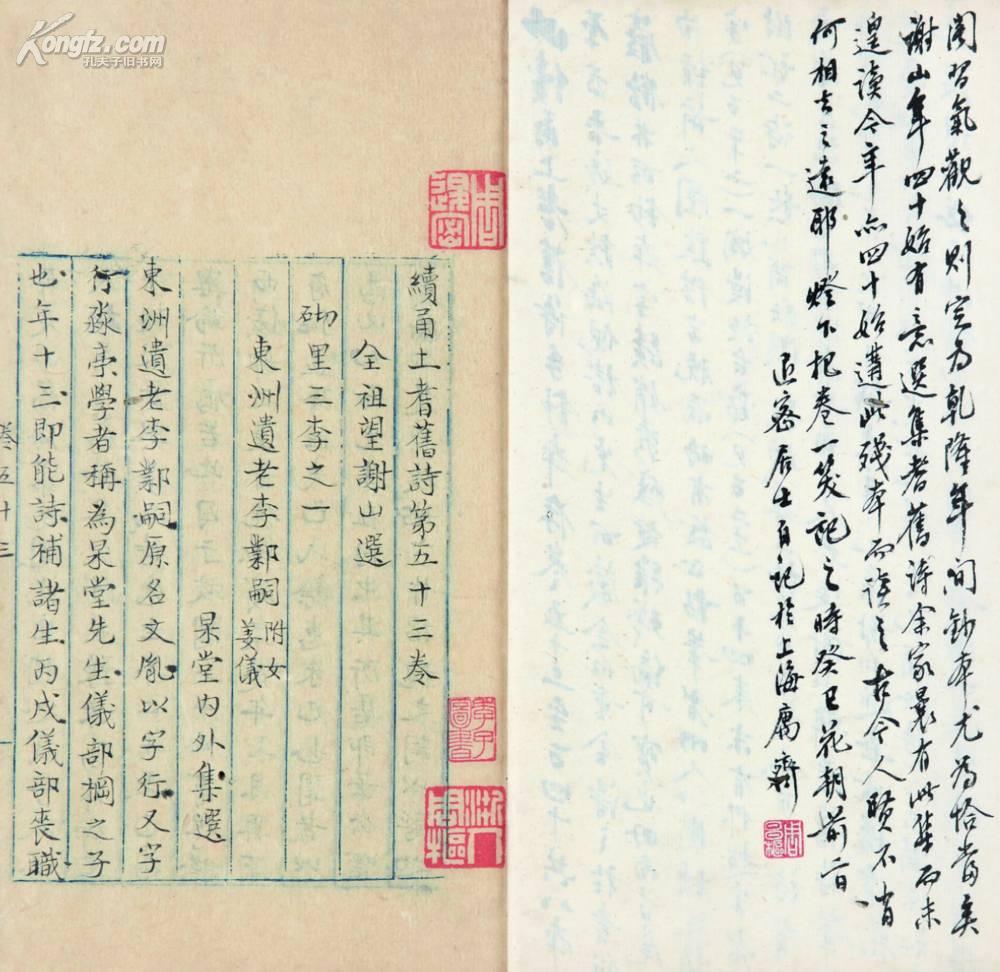 閣習氣觀之則定為乾隆年間鈔本尤為恰當矣
謝山年四十始有意選集耆舊詩余家曩有此集而未
遑讀今年亦四十始遘此殘本而讀之古今人賢不肖
何相去之遠耶燈下把卷一笑記之時癸巳花朝前二日
退密居士自記於上海庸齋
周退密
季子圖書
續甬上耆舊詩第五十三卷
全祖望謝山選
砌里三李之一
東洲遺老李鄴嗣附女姜儀
杲堂內外集選
東洲遺老李鄴嗣原名文胤以字行又字
行淼亭學者稱為杲堂先生儀部棡之子
也年十三即能詩補諸生丙戌儀部喪職
卷五十三 一
Kongfz.com
孔夫子旧书网